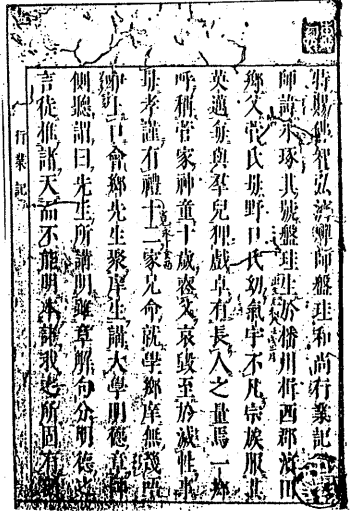 特賜佛智弘濟禪師盤珪和尚行業記
師諱永琢其號盤珪生於播州揖西郡濱田
鄉父菅氏母野口氏幼氣宇不凡宗族服其
英邁每與羣兒狎戲卓有長人之量焉一鄉
呼稱菅家神童十歲喪父哀毀至於滅性事
母孝謹有禮十二家兄命就學鄉庠無幾
一日會鄉先生聚庠生講大學明德章師
側聽謂曰先生所講明辨章解句分明德
言徒推諸天而不能明本諸我
行業記